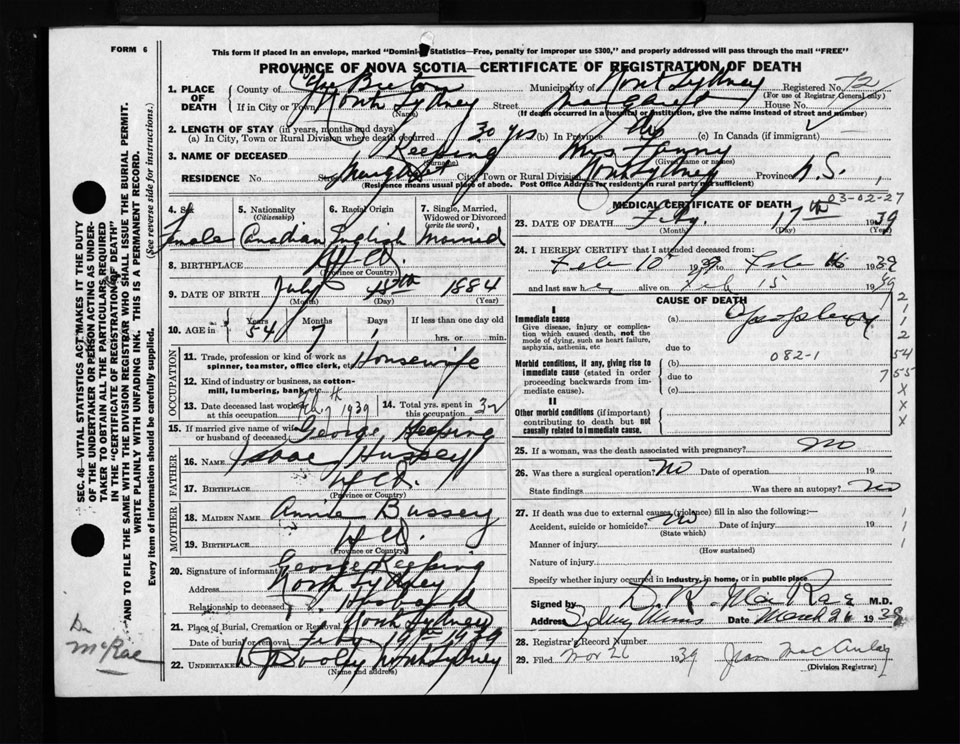 FORM 6
This form if placed in an envelope, marked "Dominion Statistics—Free, penalty for improper use $300," and properly addressed will pass through the mail "FREE"
PROVINCE OF NOVA SCOTIA—CERTIFICATE OF REGISTRATION OF DEATH
1. PLACE OF DEATH
County of Cape Breton Municipality of North Sydney Registered No. 72
(For use of Registrar General only)
If in City or Town North Sydney Street Margaret House No.
(Name) (If death occurred in a hospital or institution, give the name instead of street and number)
2. LENGTH OF STAY (in years, months and days)
(a) In City, Town or Rural Division where death occurred 30 yrs (b) In Province (c) In Canada (if immigrant)
3. NAME OF DECEASED Keeping Mrs Fanny
(Surname) (Given name or names)
RESIDENCE No. Street Margaret City, Town or Rural Division North Sydney Province N.S.
(Residence means usual place of abode. Post Office Address for residents in rural parts not sufficient)
4. Sex
Female
5. Nationality
(Citizenship)
Canadian
6. Racial Origin
English
7. Single, Married, Widowed or Divorced
(write the word)
Married
8. BIRTHPLACE Nfld.
(Province or Country)
9. DATE OF BIRTH July 15th 1884
(Month) (Day) (Year)
10. AGE in
Years Months Days If less than one day old
54 7 1 hrs. or min.
OCCUPATION
11. Trade, profession or kind of work as spinner, teamster, office clerk, etc. Housewife
12. Kind of industry or business, as cotton-mill, lumbering, bank, etc.
13. Date deceased last worked at this occupation 1939
14. Total yrs. spent in this occupation 32
15. If married give name of wife or husband of deceased George Keeping
FATHER
16. NAME Isaac Hussey
17. BIRTHPLACE Nfld.
(Province or Country)
MOTHER
18. MAIDEN NAME Annie Bussey
19. BIRTHPLACE Nfld.
(Province or Country)
20. Signature of informant George Keeping
Address North Sydney
Relationship to deceased Husband
21. Place of Burial, Cremation or Removal North Sydney
Date of burial or removal Feby. 19th 1939
22. UNDERTAKER Dooley North Sydney
(Name and address)
MEDICAL CERTIFICATE OF DEATH
03-02-27
23. DATE OF DEATH Feby. 17th 1939
(Month) (Day)
24. I HEREBY CERTIFY that I attended deceased from:
Feb 10 1939 to Feb 16 1939
and last saw her alive on Feb 15 1939
CAUSE OF DEATH
I
Immediate cause
Give disease, injury or complication which caused death, not the mode of dying, such as heart failure, asphyxia, asthenia, etc.
(a) Apoplexy
due to
Morbid conditions, if any, giving rise to immediate cause (stated in order proceeding backwards from immediate cause).
(b) 082-1
due to
(c)
II
Other morbid conditions (if important) contributing to death but not causally related to immediate cause.
2
1
2
2
54
7 55
X
X
X
X
25. If a woman, was the death associated with pregnancy? No
26. Was there a surgical operation? No Date of operation 19
State findings Was there an autopsy? No
27. If death was due to external causes (violence) fill in also the following:—
Accident, suicide or homicide? No Date of injury 19
(State which)
Manner of injury
(How sustained)
Nature of injury
Specify whether injury occurred in industry, in home, or in public place
1
1
1
Signed by D. R. MacRae M.D.
Address Sydney Mines Date March 21 1939
28. Registrar's Record Number
29. Filed Mar 26 1939 Jean MacAulay
(Division Registrar)
SEC. 46—VITAL STATISTICS ACT MAKES IT THE DUTY
OF THE UNDERTAKER OR PERSON ACTING AS UNDERTAKER
TO OBTAIN ALL THE PARTICULARS REQUIRED
IN THE "CERTIFICATE OF REGISTRATION OF DEATH"
AND TO FILE THE SAME WITH THE DIVISION REGISTRAR WHO SHALL ISSUE THE BURIAL PERMIT.
WRITE PLAINLY WITH UNFADING INK. THIS IS A PERMANENT RECORD.
Every item of information should be carefully supplied.
(See reverse side for instructions.)
Dr
McRae